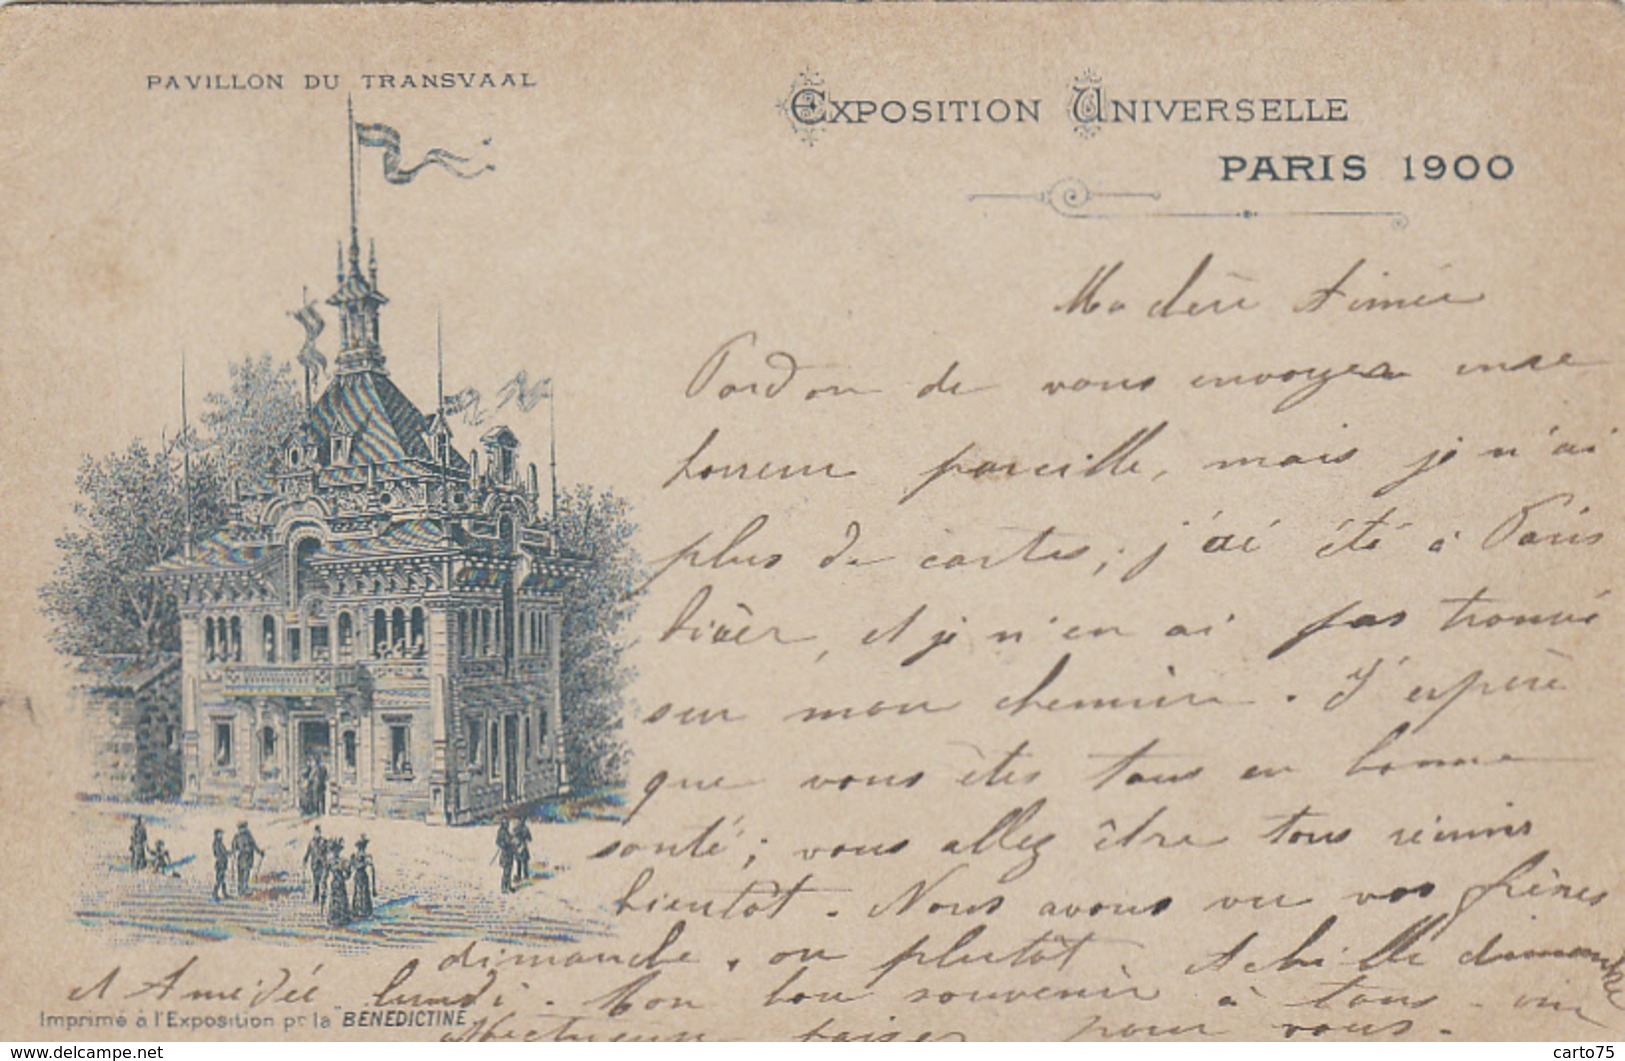 PAVILLON DU TRANSVAAL
EXPOSITION UNIVERSELLE
PARIS 1900
Ma chère Aimée
Pardon de vous envoyer une
horreur pareille, mais je n'ai
plus de cartes; j'ai été à Paris
hièr, et je n'en ai pas trouvé
sur mon chemin. J'espère
que vous êtes tous en bonne
santé; vous allez être tous réunis
bientôt. Nous avons vu vos frères
dimanche, ou plutôt Achille dimanche
et Amédée lundi. Mon bon souvenir à tous
affectueux baiser pour vous.
Imprimé à l'Exposition pr la BENEDICTINE
carto75